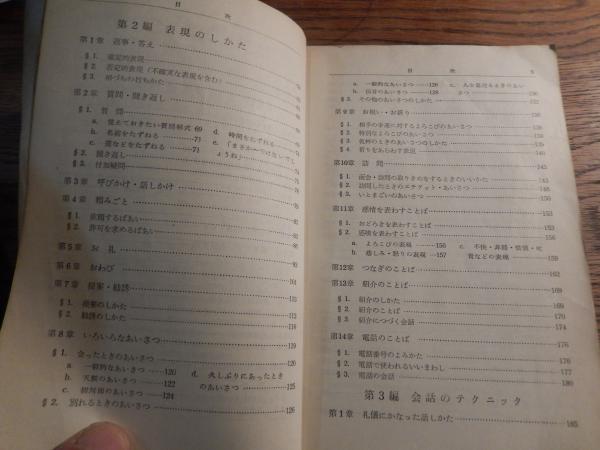 目 次
第2編 表現のしかた
第1章 返事・答え
§1. 肯定的表現
§2. 否定的表現(不確実な表現を含む)
§3. 相づちの打ちかた
第2章 質問・聞き返し
§1. 質問
a. 覚えておきたい質問形式 69
b. 名前をたずねる
c. 道などをたずねる
d. 時間をたずねる
§2. 聞き返し
§3. 付加疑問
第3章 呼びかけ・話しかけ
第4章 頼みごと
§1. 依頼するばあい
§2. 許可を求めるばあい
第5章 お礼
第6章 おわび 101
第7章 提案・勧誘
§1. 提案のしかた
§2. 勧誘のしかた 118
第8章 いろいろなあいさつ
§1. 会ったときのあいさつ 120
a. 一般的なあいさつ 120
b. 天候のあいさつ 122
c. 初対面のあいさつ 124
d. 久しぶりにあったときのあいさつ 125
§2. 別れるときのあいさつ 126
目 次 5
a. 一般的なあいさつ 126
b. 伝言のあいさつ 128
あいさつ
§3. その他のあいさつのしかた
第9章 お祝い・お祈り
§1. 相手の幸運に対するよろこびのあいさつ
§2. 特別なよろこびのあいさつ
§3. 祝杯のときのあいさつのしかた
§4. 祈りをあらわす表現
第10章 訪問 143
§1. 面会・訪問の取りきめをするときのいいかた
§2. 訪問したときのエチケット・あいさつ 145
§3. いとまごいのあいさつ 150
第11章 感情を表わすことば 153
§1. おどろきを表わすことば 153
§2. 感嘆を表わすことば 156
a. よろこびの表現 156
b. 悲しみ・怒りの表現 157
c. 不快・非難・叱責などの表現 159
第12章 つなぎのことば 162
第13章 紹介のことば 169
§1. 紹介のしかた 169
§2. 紹介のことば 170
§3. 紹介につづく会話 174
第14章 電話のことば 176
§1. 電話番号のよみかた 176
§2. 電話で使われるいいまわし 177
§3. 電話の会話 180
第3編 会話のテクニック
第1章 礼儀にかなった話しかた 185